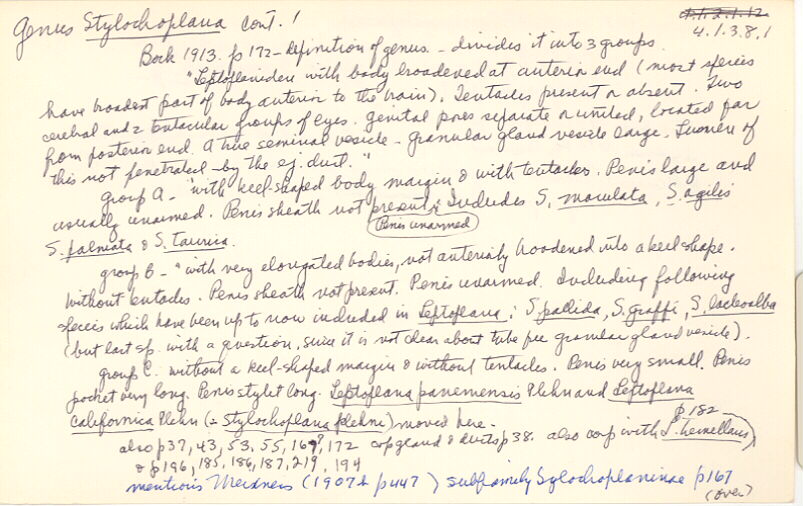 Genus Stylochoplana cont. 1
4.1.2.1.12
4.1.3.8.1
Bock 1913. p 172 - definition of genus. - divides it into 3 groups.
"Leptoplaniden with body broadened at anterior end (most species
have broadest part of body anterior to the brain). Tentacles present or absent. Two
cerebral and 2 tentacular groups of eyes. Genital pores separate or united, located far
from posterior end. A true seminal vesicle - granular gland vesicle large. Lumen of
this not penetrated by the ej. duct."
group A - "with keel-shaped body margin & with tentacles. Penis large and
usually unarmed. Penis sheath not present; Includes S. maculata, S. agilis
Penis unarmed
S. palmata & S. taurica.
group B - "with very elongated bodies, not anteriorly broadened into a keel shape.
Without tentacles. Penis sheath not present. Penis unarmed. Including following
species which have been up to now included in Leptoplana; S. pallida, S. graffi, S. lacteoalba
(but last sp. with a question, since it is not clear about tube free granular gland vesicle).
group C. without a keel-shaped margin & without tentacles. Penis very small. Penis
pocket very long. Penis stylet long. Leptoplana panamensis Plehn and Leptoplana
californica Plehn (= Stylochoplana plehni) moved here.
p 182
also p 37, 43, 53, 55, 169?, 172 cop gland & ducts p 38. also comp with S. tenellus,
& p 196, 185, 186, 187, 219, 194
mentions Meixners (1907b p 447) subfamily Sylochoplaninae p 167
(over)